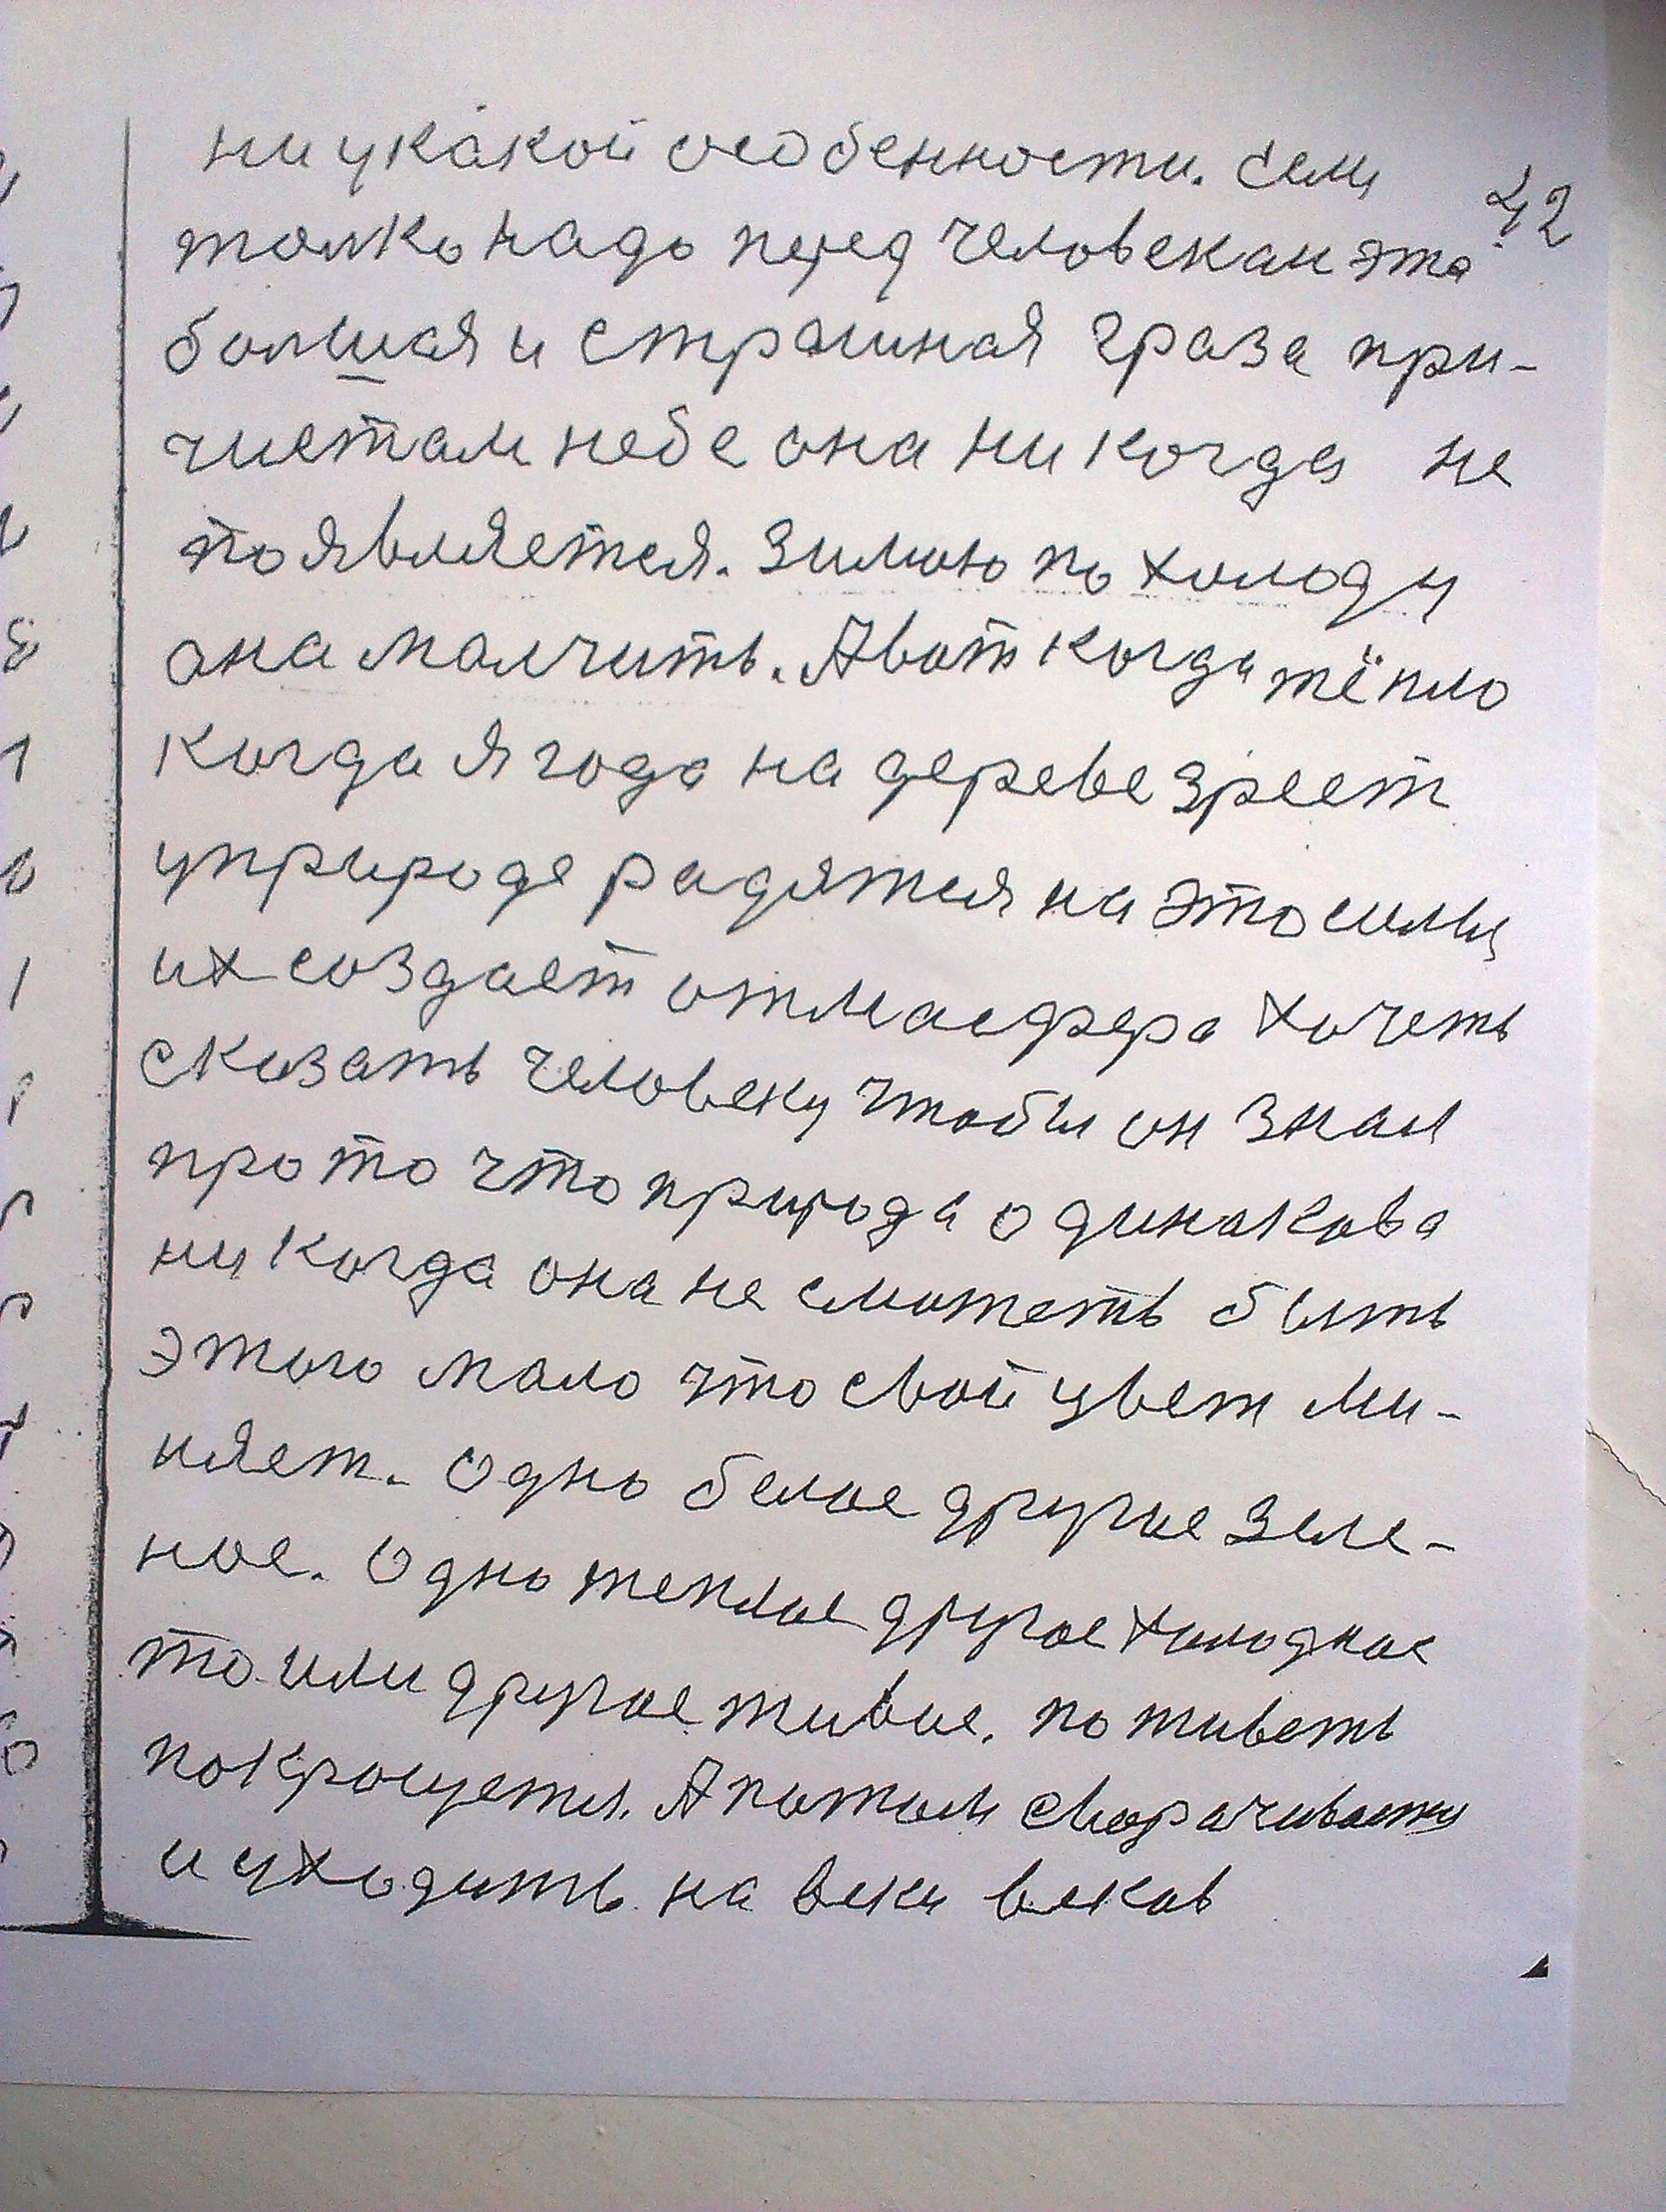 ни укакой особенности. Если
42
толко надо перед человекам это
болшая и страшная граза при-
чистам небе она ни когда не
появляется. Зимою по холоду
она малчить. А вот когда тёпло
когда ягода на дереве зреет
уприроде радятся на это силы
их создает отмасфера хочеть
сказать человеку чтобы он знал
про то что природа одинакова
ни когда она не сможеть быть
этого мало что свой цвет ми-
няет. Одно белое другое зеле-
ное. Одно теплое другое холодное
то или другое живое. по живеть
покрасуется. А потом сворачивается
и уходить на веки веков